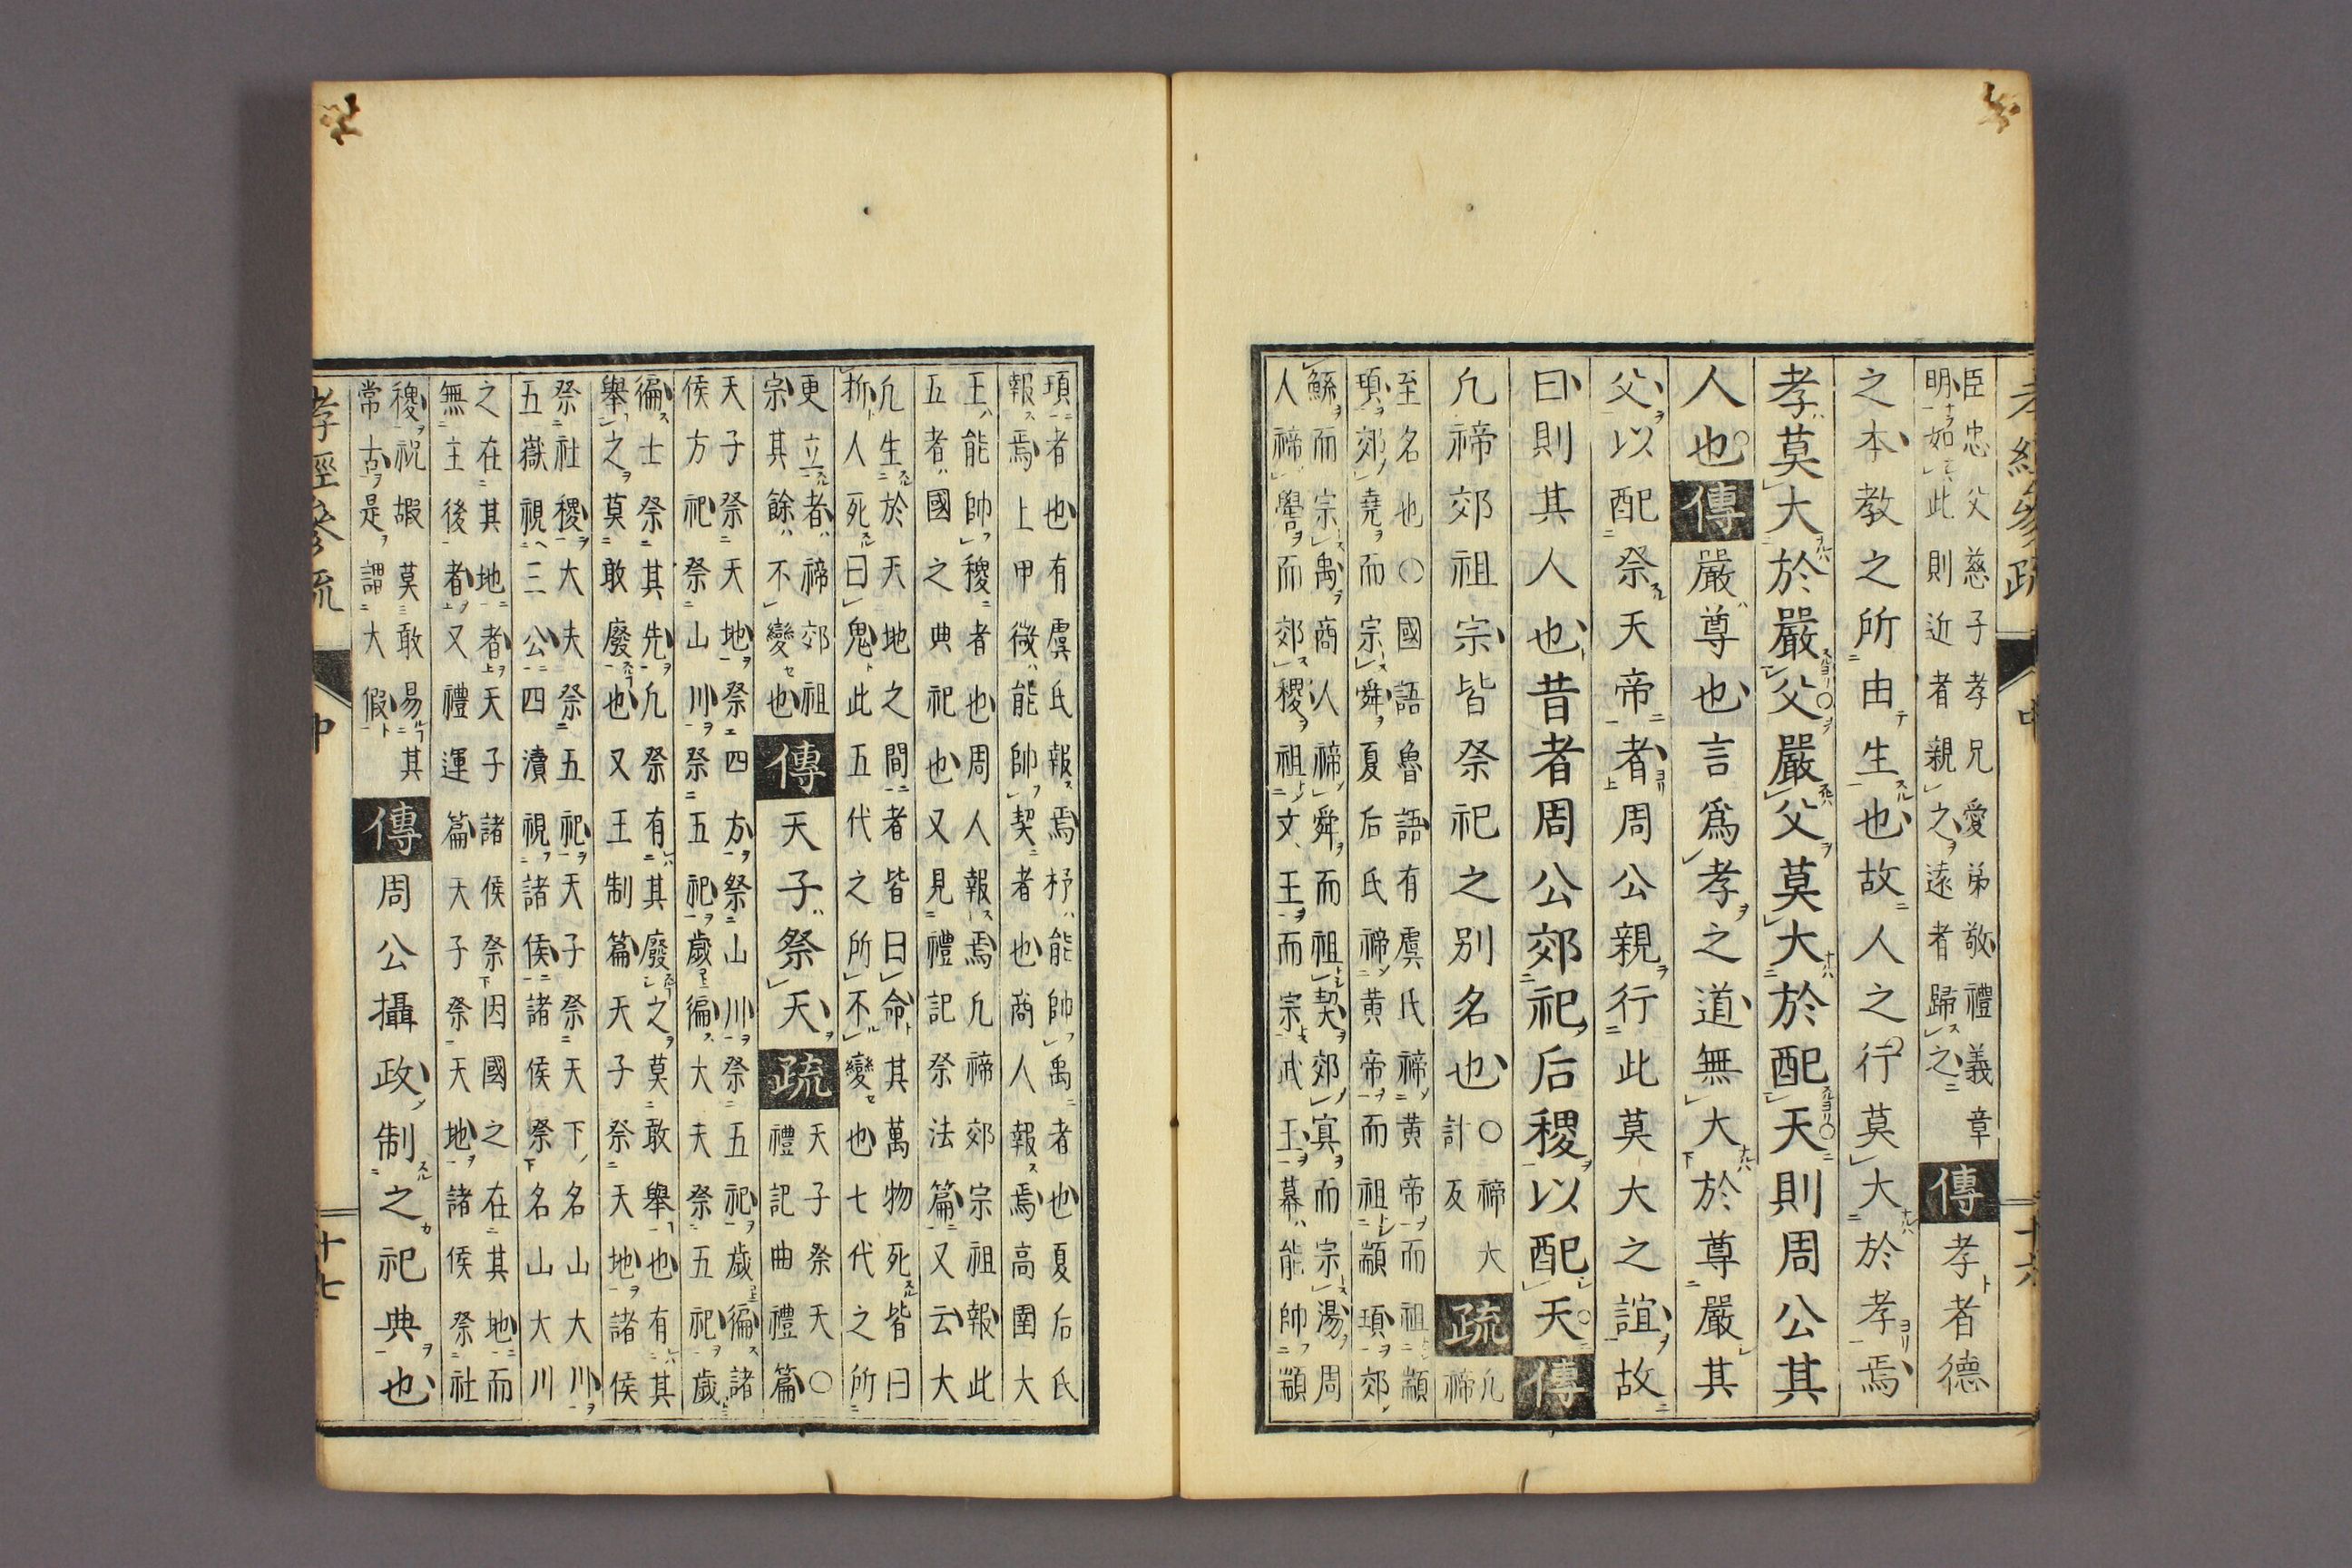 臣忠父慈子孝兄愛弟敬禮義章
明如此則近者親之遠者歸之
傳孝者德
之本教之所由生也故人之行莫大於孝焉
孝莫大於嚴父嚴父莫大於配天則周公其
人也傳嚴尊也言爲孝之道無大於尊嚴其
父以配祭天帝者周公親行此莫大之誼故
曰則其人也昔者周公郊祀后稷以配天傳
凢禘郊祖宗皆祭祀之别名也
○禘大
計反
疏
凢
禘
至名也○國語魯語有虞氏禘黄帝而祖顓
頊郊堯而宗舜夏后氏禘黄帝而祖顓頊郊
鯀而宗禹商人禘舜而祖契郊冥而宗湯周
人禘嚳而郊稷祖文王而宗武王幕能帥顓
頊者也有虞氏報焉杼能帥禹者也夏后氏
報焉上甲微能帥契者也商人報焉高圉大
王能帥稷者也周人報焉凢禘郊宗祖報此
五者國之典祀也又見禮記祭法篇又云大
凢生於天地之間者皆曰命其萬物死皆曰
折人死曰鬼此五代之所不變也七代之所
更立者禘郊祖
宗其餘不變也
傳天子祭天疏
天子祭天○
禮記曲禮篇
天子祭天地祭四方祭山川祭五祀歲徧諸
侯方祀祭山川祭五祀歲徧大夫祭五祀歲
徧士祭其先凢祭有其廢之莫敢舉也有其
舉之莫敢廢也又王制篇天子祭天地諸侯
祭社稷大夫祭五祀天子祭天下名山大川
五嶽視三公四瀆視諸侯諸侯祭名山大川
之在其地者天子諸侯祭因國之在其地而
無主後者又禮運篇天子祭天地諸侯祭社
稷祝嘏莫敢易其
常古是謂大假
傳周公攝政制之祀典也
孝經參疏
中
十七